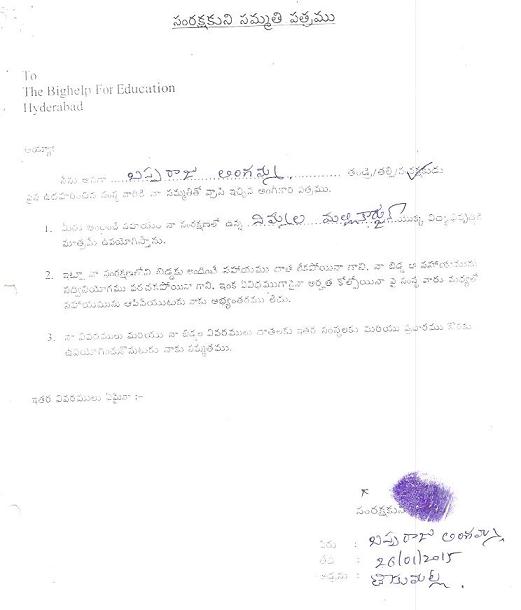 సంరక్షకుని సమ్మతి పత్రము
To
The Bighelp For Education
Hyderabad
అయ్యా
నేను అనగా అంగమ్మ తండ్రి/తల్లి/సంరక్షకుడు
పైన ఉదహరించిన సంస్థ వారికి నా సమ్మతితో వ్రాసి ఇచ్చిన అంగీకార పత్రము.
1. మీరు అందించే సహాయం నా సంరక్షణలో ఉన్న
మాత్రమే ఉపయోగిస్తాను.
2. ఇట్లూ నా సంరక్షణలోని బిడ్డకు అందించే సహాయము దాత లేకపోయినా గాని, నా బిడ్డ ఆ సహాయమును
సద్వినియోగము పరచకపోయినా గాని, ఇంక ఏవిధముగానైనా అర్హత కోల్పోయినా పై సంస్థ వారు మధ్యలో
సహాయమును ఆపివేయుటకు నాకు అభ్యంతరము లేదు.
3. నా వివరములు మరియు నా బిడ్డల వివరములు దాతలకు ఇతర సంస్థలకు మరియు ప్రచారము కొరకు
ఉపయోగించుకొనుటకు నాకు సమ్మతము.
ఇతర వివరములు ఏమైనా :-
సంరక్షకుని
పేరు : అంగమ్మ
తేది : 26/01/2015